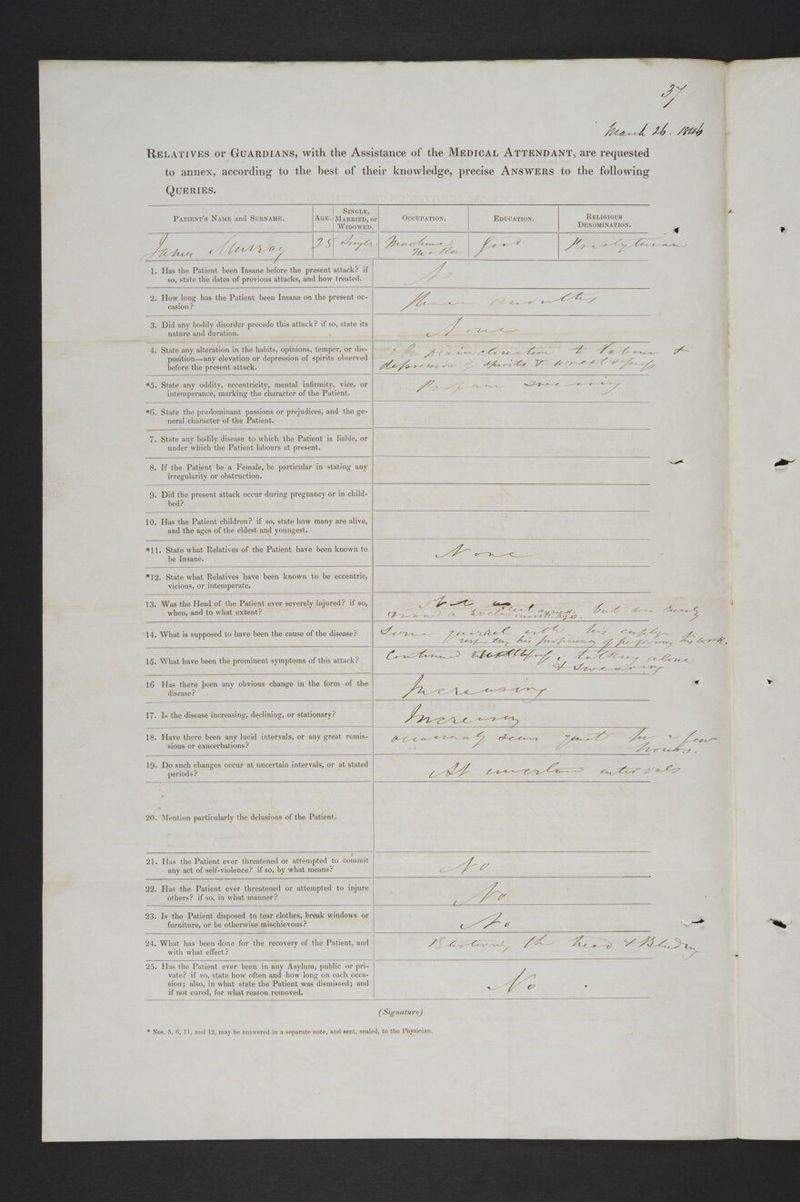 37
March 26. 1846
RELATIVES or GUARDIANS, with the Assistance of the MEDICAL ATTENDANT, are requested
to annex, according to the best of their knowledge, precise ANSWERS to the following
QUERIES.
PATIENT'S NAME and SURNAME. AGE. SINGLE, MARRIED, or WIDOWED. OCCUPATION. EDUCATION. RELIGIOUS DENOMINATION.
James Murray 25 Single Machine Maker good Presbyterian
1. Has the Patient been Insane before the present attack? if
so, state the dates of previous attacks, and how treated.
No
2. How long has the Patient been Insane on the present oc-
casion?
months
3. Did any bodily disorder precede this attack? if so, state its
nature and duration.
None
4. State any alteration in the habits, opinions, temper, or dis-
position—any elevation or depression of spirits observed
before the present attack.
disinclination to labour &
depression of spirits &
*5. State any oddity, eccentricity, mental infirmity, vice, or
intemperance, marking the character of the Patient.
Profane swearing
*6. State the predominant passions or prejudices, and the ge-
neral character of the Patient.
7. State any bodily disease to which the Patient is liable, or
under which the Patient labours at present.
8. If the Patient be a Female, be particular in stating any
irregularity or obstruction.
9. Did the present attack occur during pregnancy or in child-
bed?
10. Has the Patient children? if so, state how many are alive,
and the ages of the eldest and youngest.
*11. State what Relatives of the Patient have been known to
be Insane.
None
*12. State what Relatives have been known to be eccentric,
vicious, or intemperate.
13. Was the Head of the Patient ever severely injured? if so,
when, and to what extent?
Not
months ago. but
14. What is supposed to have been the cause of the disease?
Some quarrel with his
his work.
15. What have been the prominent symptoms of this attack?
Continued talking alone
& Swearing
16 Has there been any obvious change in the form of the
disease?
Increasing
17. Is the disease increasing, declining, or stationary?
Increasing
18. Have there been any lucid intervals, or any great remis-
sions or exacerbations?
occasionally seems quiet for a few
hours.
19. Do such changes occur at uncertain intervals, or at stated
periods?
At uncertain intervals
20. Mention particularly the delusions of the Patient.
21. Has the Patient ever threatened or attempted to commit
any act of self-violence? if so, by what means?
No
22. Has the Patient ever threatened or attempted to injure
others? if so, in what manner?
No
23. Is the Patient disposed to tear clothes, break windows or
furniture, or be otherwise mischievous?
No
24. What has been done for the recovery of the Patient, and
with what effect?
Blistering the head & Bleeding
25. Has the Patient ever been in any Asylum, public or pri-
vate? if so, state how often and how long on each occa-
sion; also, in what state the Patient was dismissed; and
if not cured, for what reason removed.
No
(Signature)
* Nos. 5, 6, 11, and 12, may be answered in a separate note, and sent, sealed, to the Physician.